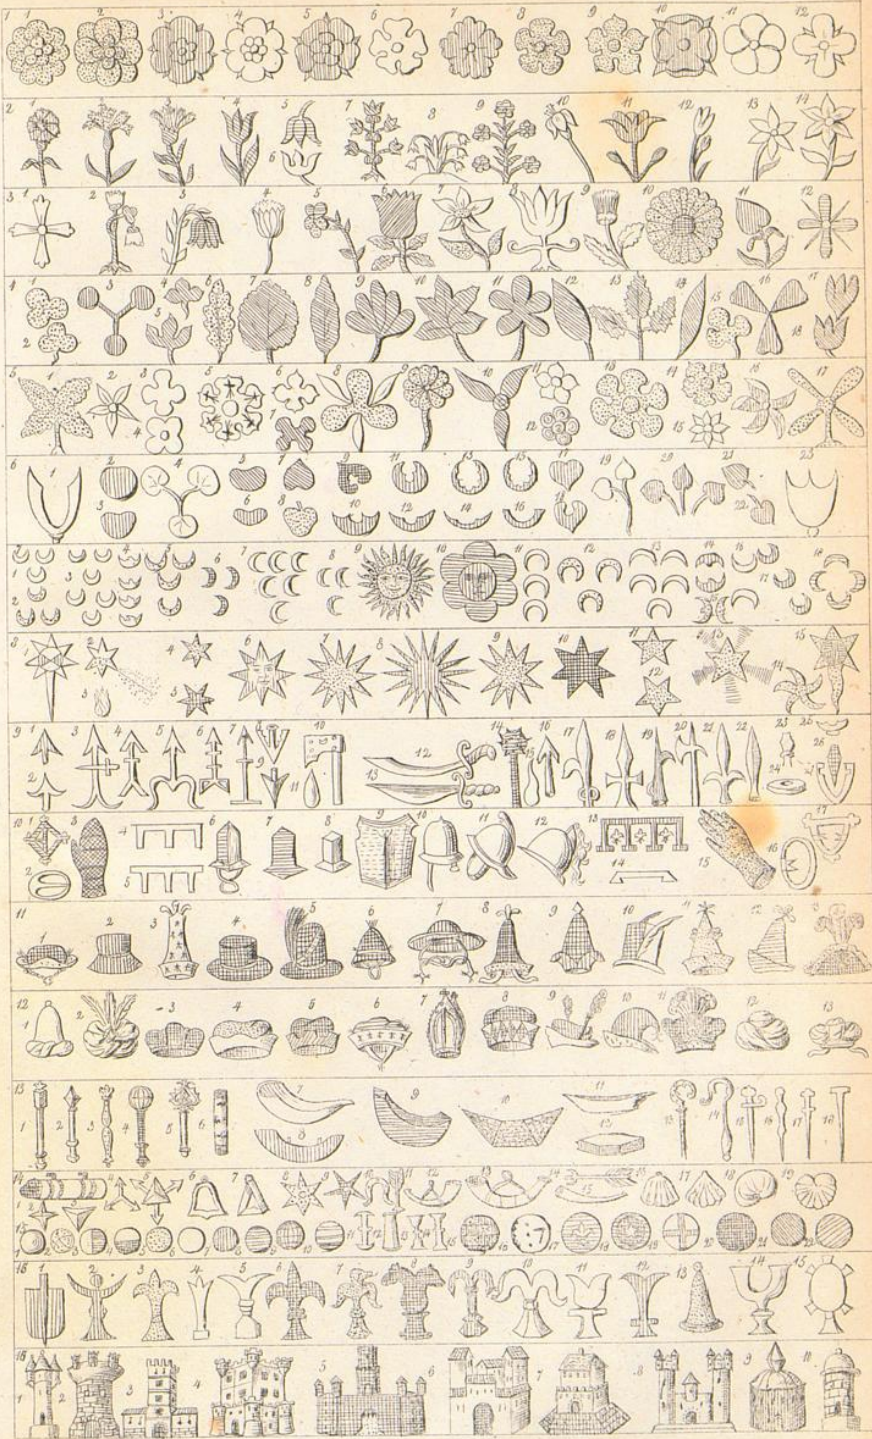 1 1 2 3 4 5 6 7 8 9 10 11 12
2 1 2 3 4 5 6 7 8 9 10 11 12 13 14
3 1 2 3 4 5 6 7 8 9 10 11 12
4 1 2 3 4 5 6 7 8 9 10 11 12 13 14 15 16 17 18
5 1 2 3 4 5 6 7 8 9 10 11 12 13 14 15 16 17
6 1 2 3 4 5 6 7 8 9 10 11 12 13 14 15 16 17 18 19 20 21 22 23
7 1 2 3 4 5 6 7 8 9 10 11 12 13 14 15 17 18
8 1 2 3 4 5 6 7 8 9 10 11 12 13 14 15
9 1 2 3 4 5 6 7 8 9 10 11 12 13 14 15 16 17 18 19 20 21 22 23 24 25 26
10 1 2 3 4 5 6 7 8 9 10 11 12 13 14 15 16 17
11 1 2 3 4 5 6 7 8 9 10 11 12
12 1 2 3 4 5 6 7 8 9 10 11 12 13
13 1 2 3 4 5 6 7 8 9 10 11 12 13 14 15 16 17 18
14 1 2 3 4 5 6 7 8 9 10 11 12 13 14 15 16 17 18 19
15 1 2 3 4 5 6 7 8 9 10 11 12 13 14 15 16 17 18 19 20 21 22
1 2 3 4 5 6 7 8 9 10 11 12 13 14 15
16 1 2 3 4 5 6 7 8 9 10